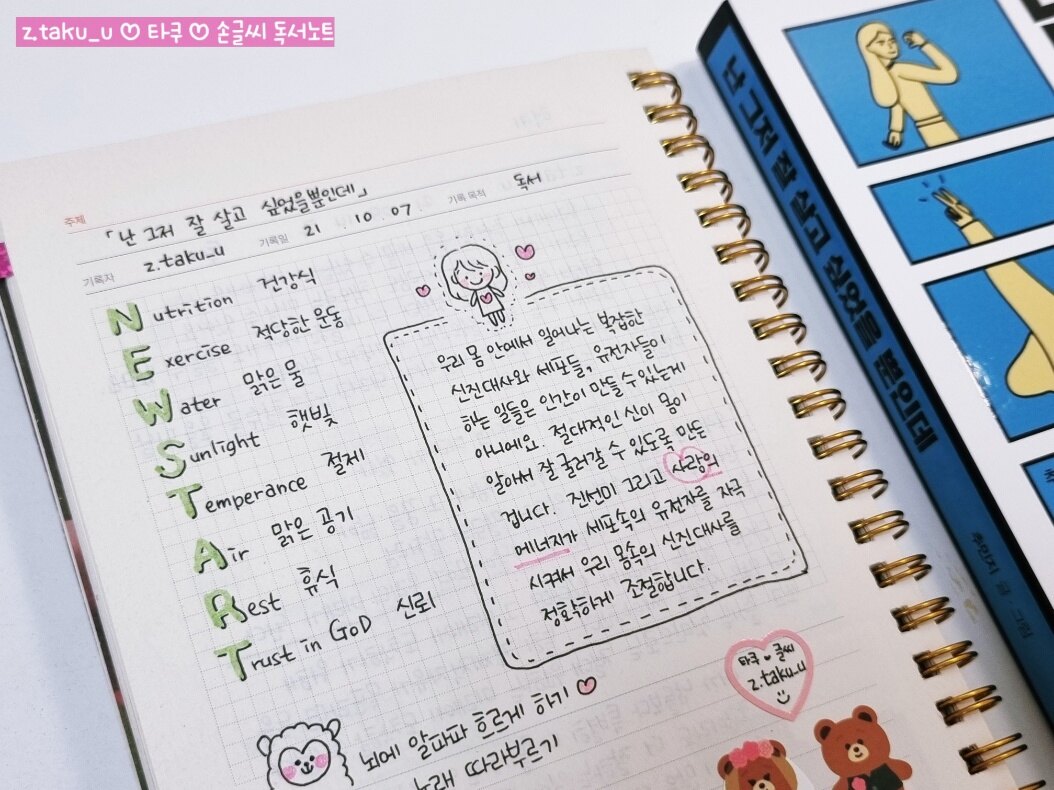 z.taku_u ♡ 타쿠 ♡ 손글씨 독서노트
주제
「난 그저 잘 살고 싶었을뿐인데」
기록자 z.taku_u 기록일 21 10 07 기록 목적 독서
Nutrition 건강식
Exercise 적당한 운동
Water 맑은 물
Sunlight 햇빛
Temperance 절제
Air 맑은 공기
Rest 휴식
Trust in GoD 신뢰
우리 몸 안에서 일어나는 복잡한
신진대사와 세포들, 유전자들이
하는 일들은 인간이 만들 수 있는게
아니에요. 절대적인 신이 몸이
알아서 잘 굴러갈 수 있도록 만든
겁니다. 진선미 그리고 사랑의
에너지가 세포속의 유전자를 자극
시켜서 우리 몸속의 신진대사를
정확하게 조절합니다.
타쿠♥글씨
z.taku_u
뇌에 알파파 흐르게 하기 ♡
노래 따라부르기
난 그저 잘 살고 싶었을 뿐인데